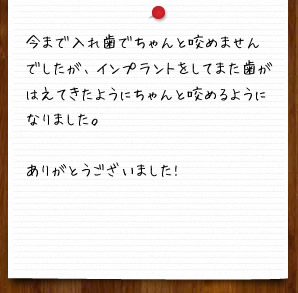 今まで入れ歯でちゃんと咬めません
でしたが、インプラントをしてまた歯が
はえてきたようにちゃんと咬めるように
なりました。
ありがとうございました!